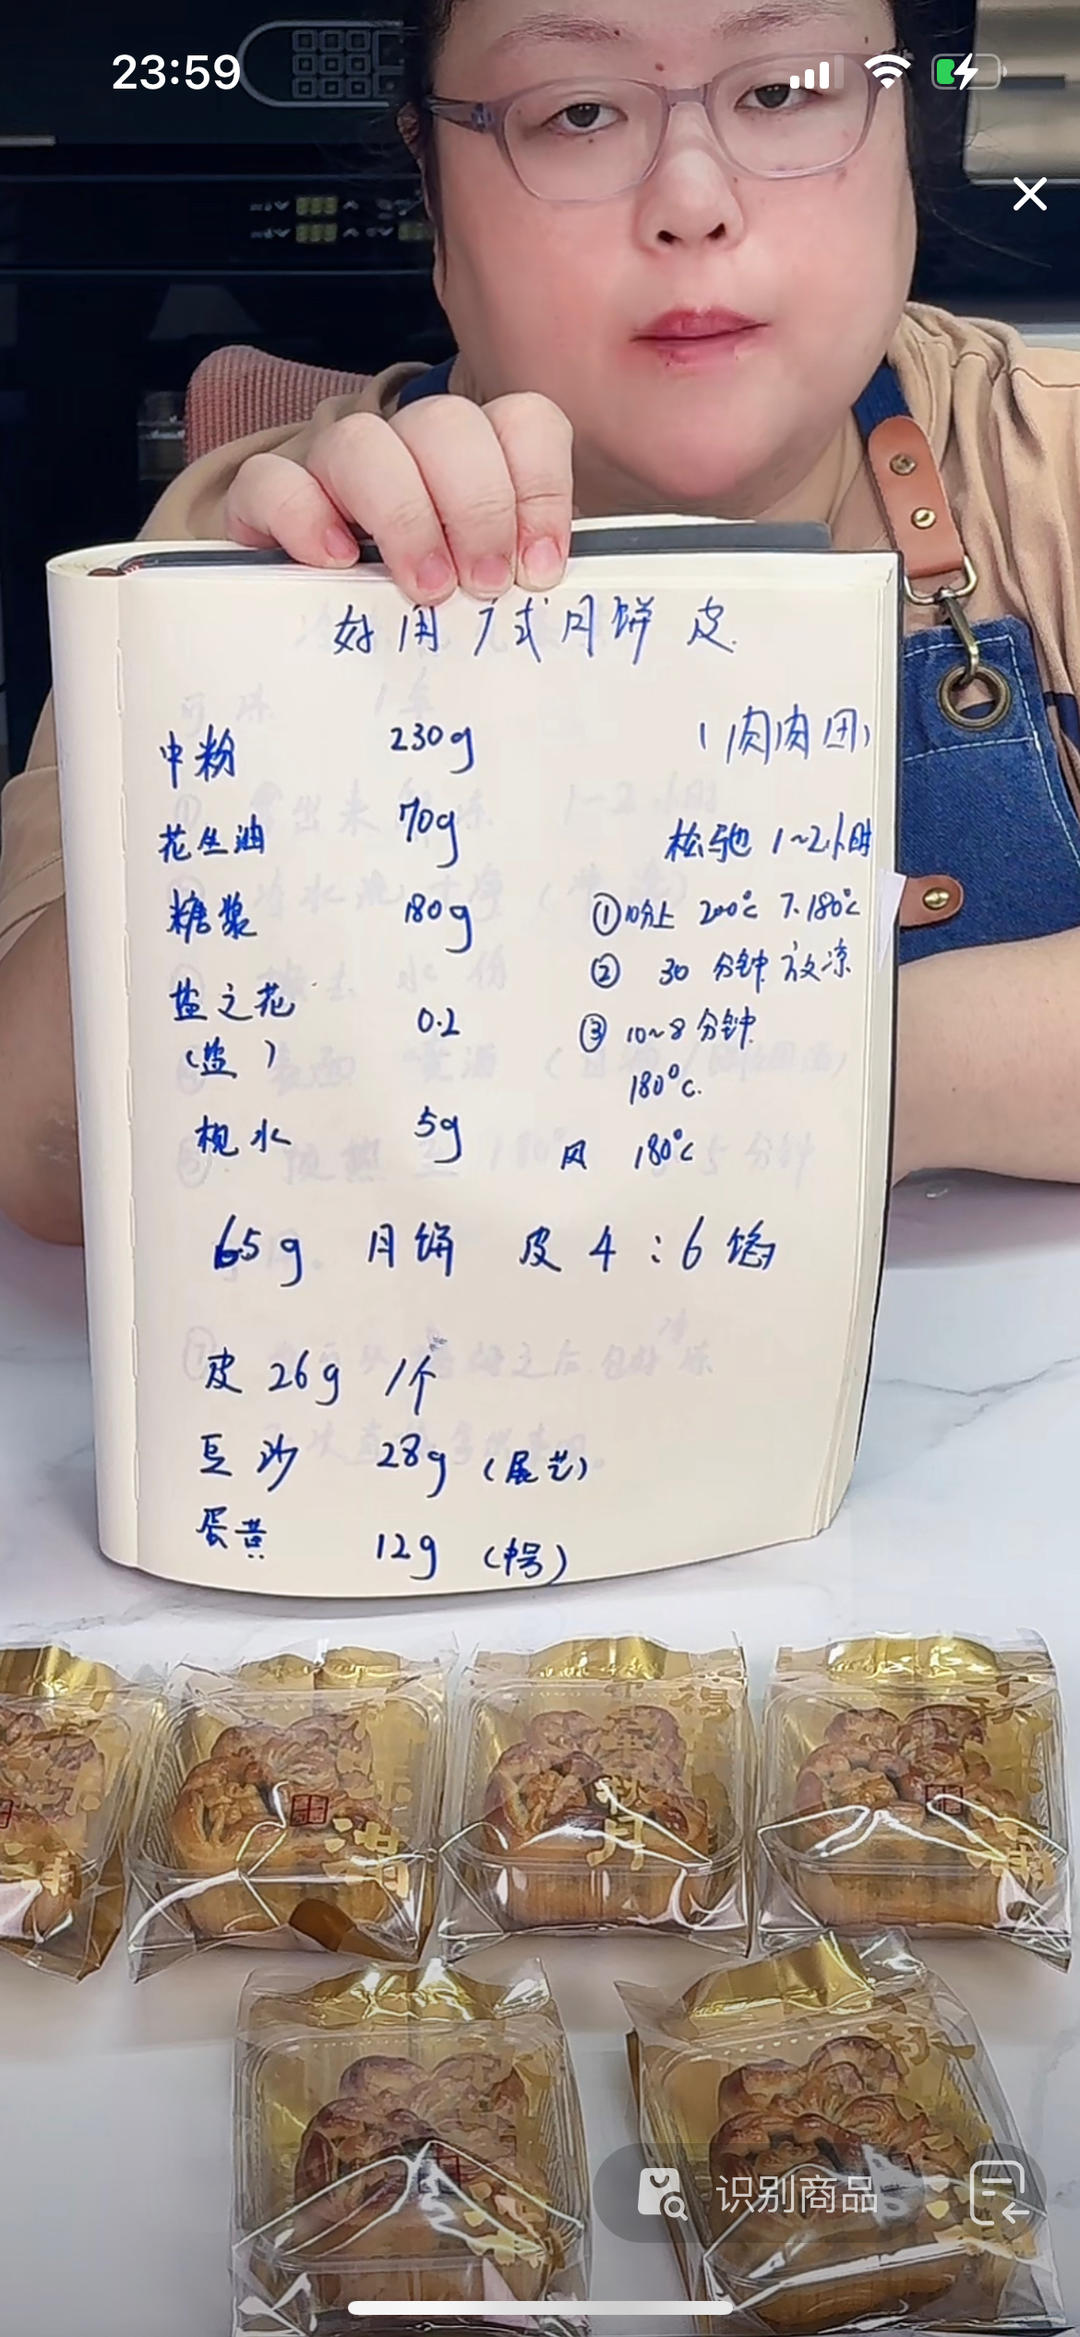 23:59
好用广式月饼皮
中粉 230g (肉肉团)
花生油 70g 松驰 1~2小时
糖浆 180g ①10分上 200℃ 下.180℃
② 30 分钟 放凉
盐之花 0.2 ③ 10~8 分钟
(盐) 180℃.
枧水 5g 风 180℃
65g 月饼 皮 4:6 馅
皮 26g 1个
豆沙 28g (展艺)
蛋黄 12g (中号)
满
中秋月
识别商品